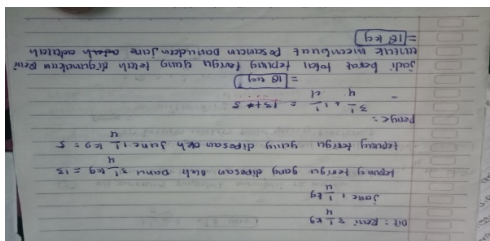 Dit : Beni 3 1/4 kg
Jane 1 1/4 kg
tepung terigu yang dipesan oleh Danu 3 1/4 kg = 13
tepung terigu yang dipesan oleh Jane 1 1/4 kg = 5
Penye :
3 1/4 + 1 1/4 = 13 + 5
= 18 kg
jadi berat total tepung terigu yang telah digunakan Beni
untuk membuat pesanan Danudan Jane adalah
= 18 kg